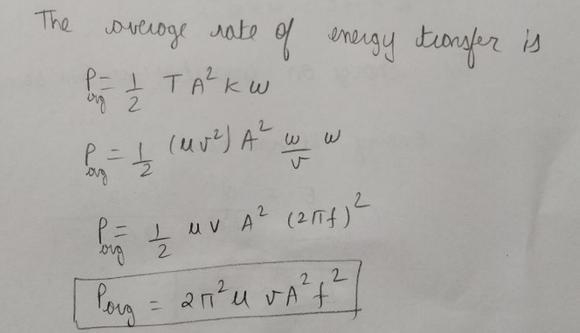 The average rate of energy transfer is
P_avg = 1/2 T A² K ω
P_avg = 1/2 (μv²) A² ω/v ω
P_avg = 1/2 μ v A² (2πf)²
P_avg = 2π² μ v A² f²